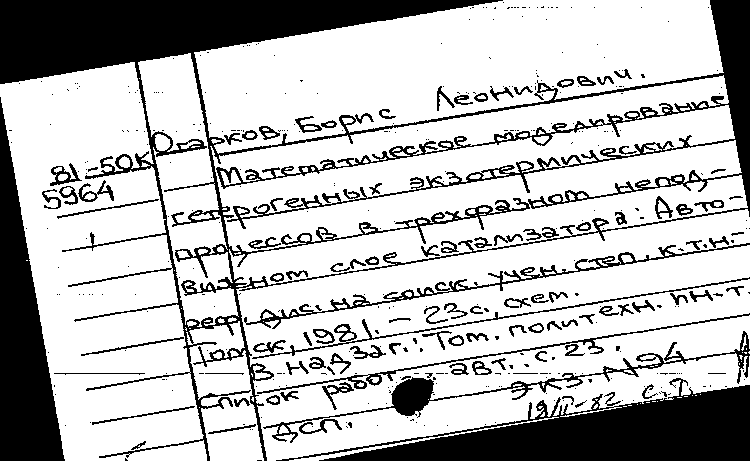 Огарков, Борис Леонидович.
81-50К
5964
Математическое моделирование
гетерогенных экзотермических
процессов в трехфазном непод-
вижном слое катализатора: Авто-
реф. дис. на соиск. учен. степ. к.т.н.-
Томск, 1981. - 23 с., схем.
В надзаг.: Том. политехн. ин-т.
Список работ авт.: с. 23.
Экз. №94
ДСП.
19/II-82